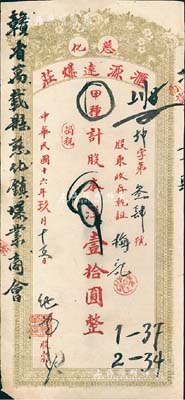 慈化
灑源遠爆莊
坤字第叁肆號
股東收存執 梅記
甲種
計股本洋壹拾圓整
捐稅
中華民國十六年玖月十五日
贛省萬載縣慈化鎮爆業商會
1-37
2-34